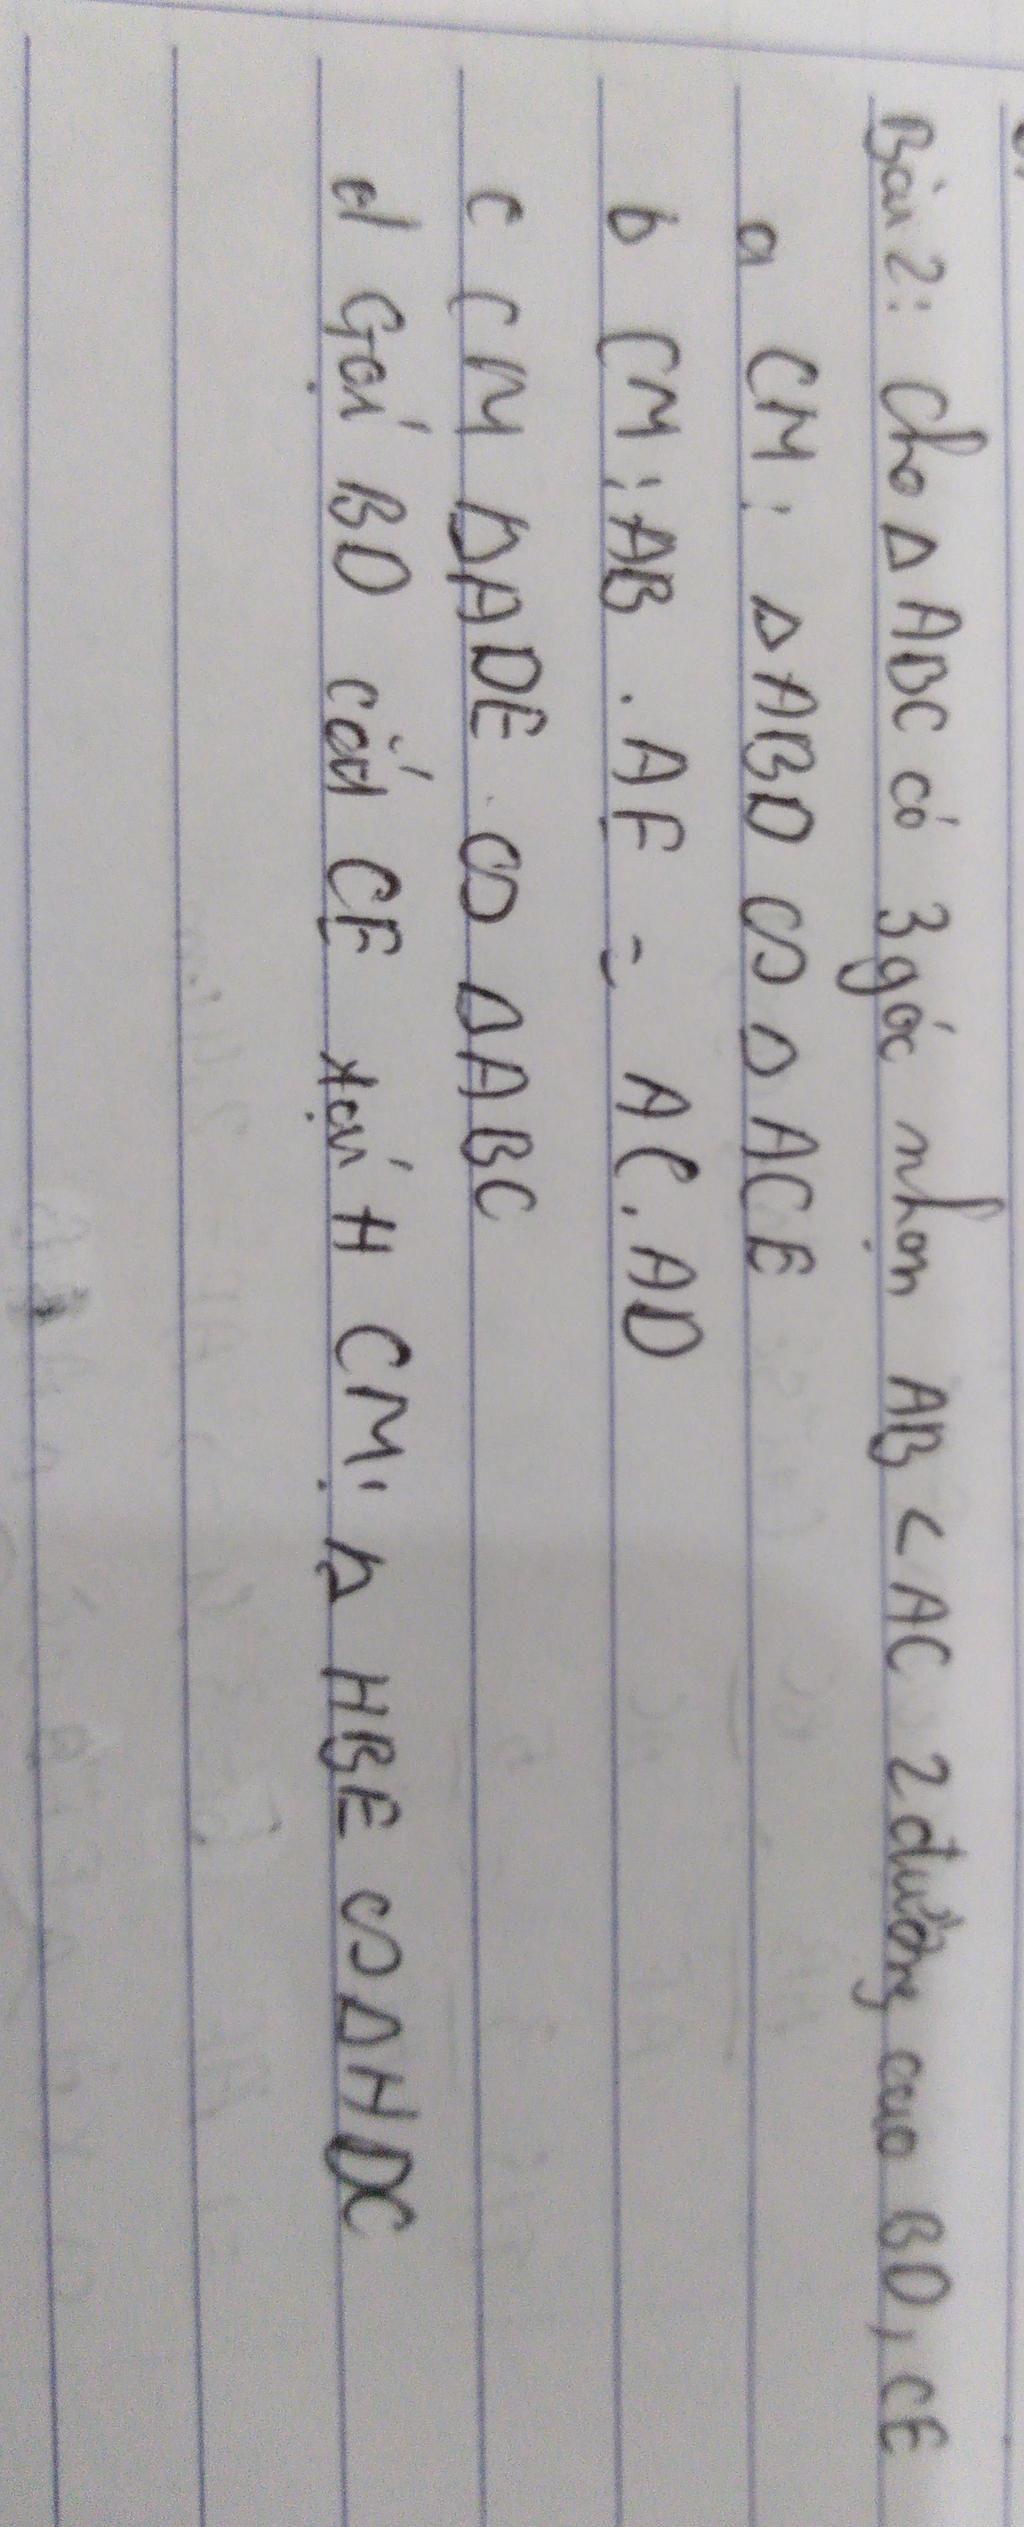 Bài 2: Cho Δ ABC có 3 góc nhọn AB < AC 2 đường cao BD, CE
a CM: Δ ABD ∽ Δ ACE
b CM: AB . AE = AC . AD
c CM Δ ADE ∽ Δ ABC
d Gọi BD cắt CE tại H CM: Δ HBE ∽ Δ HDC